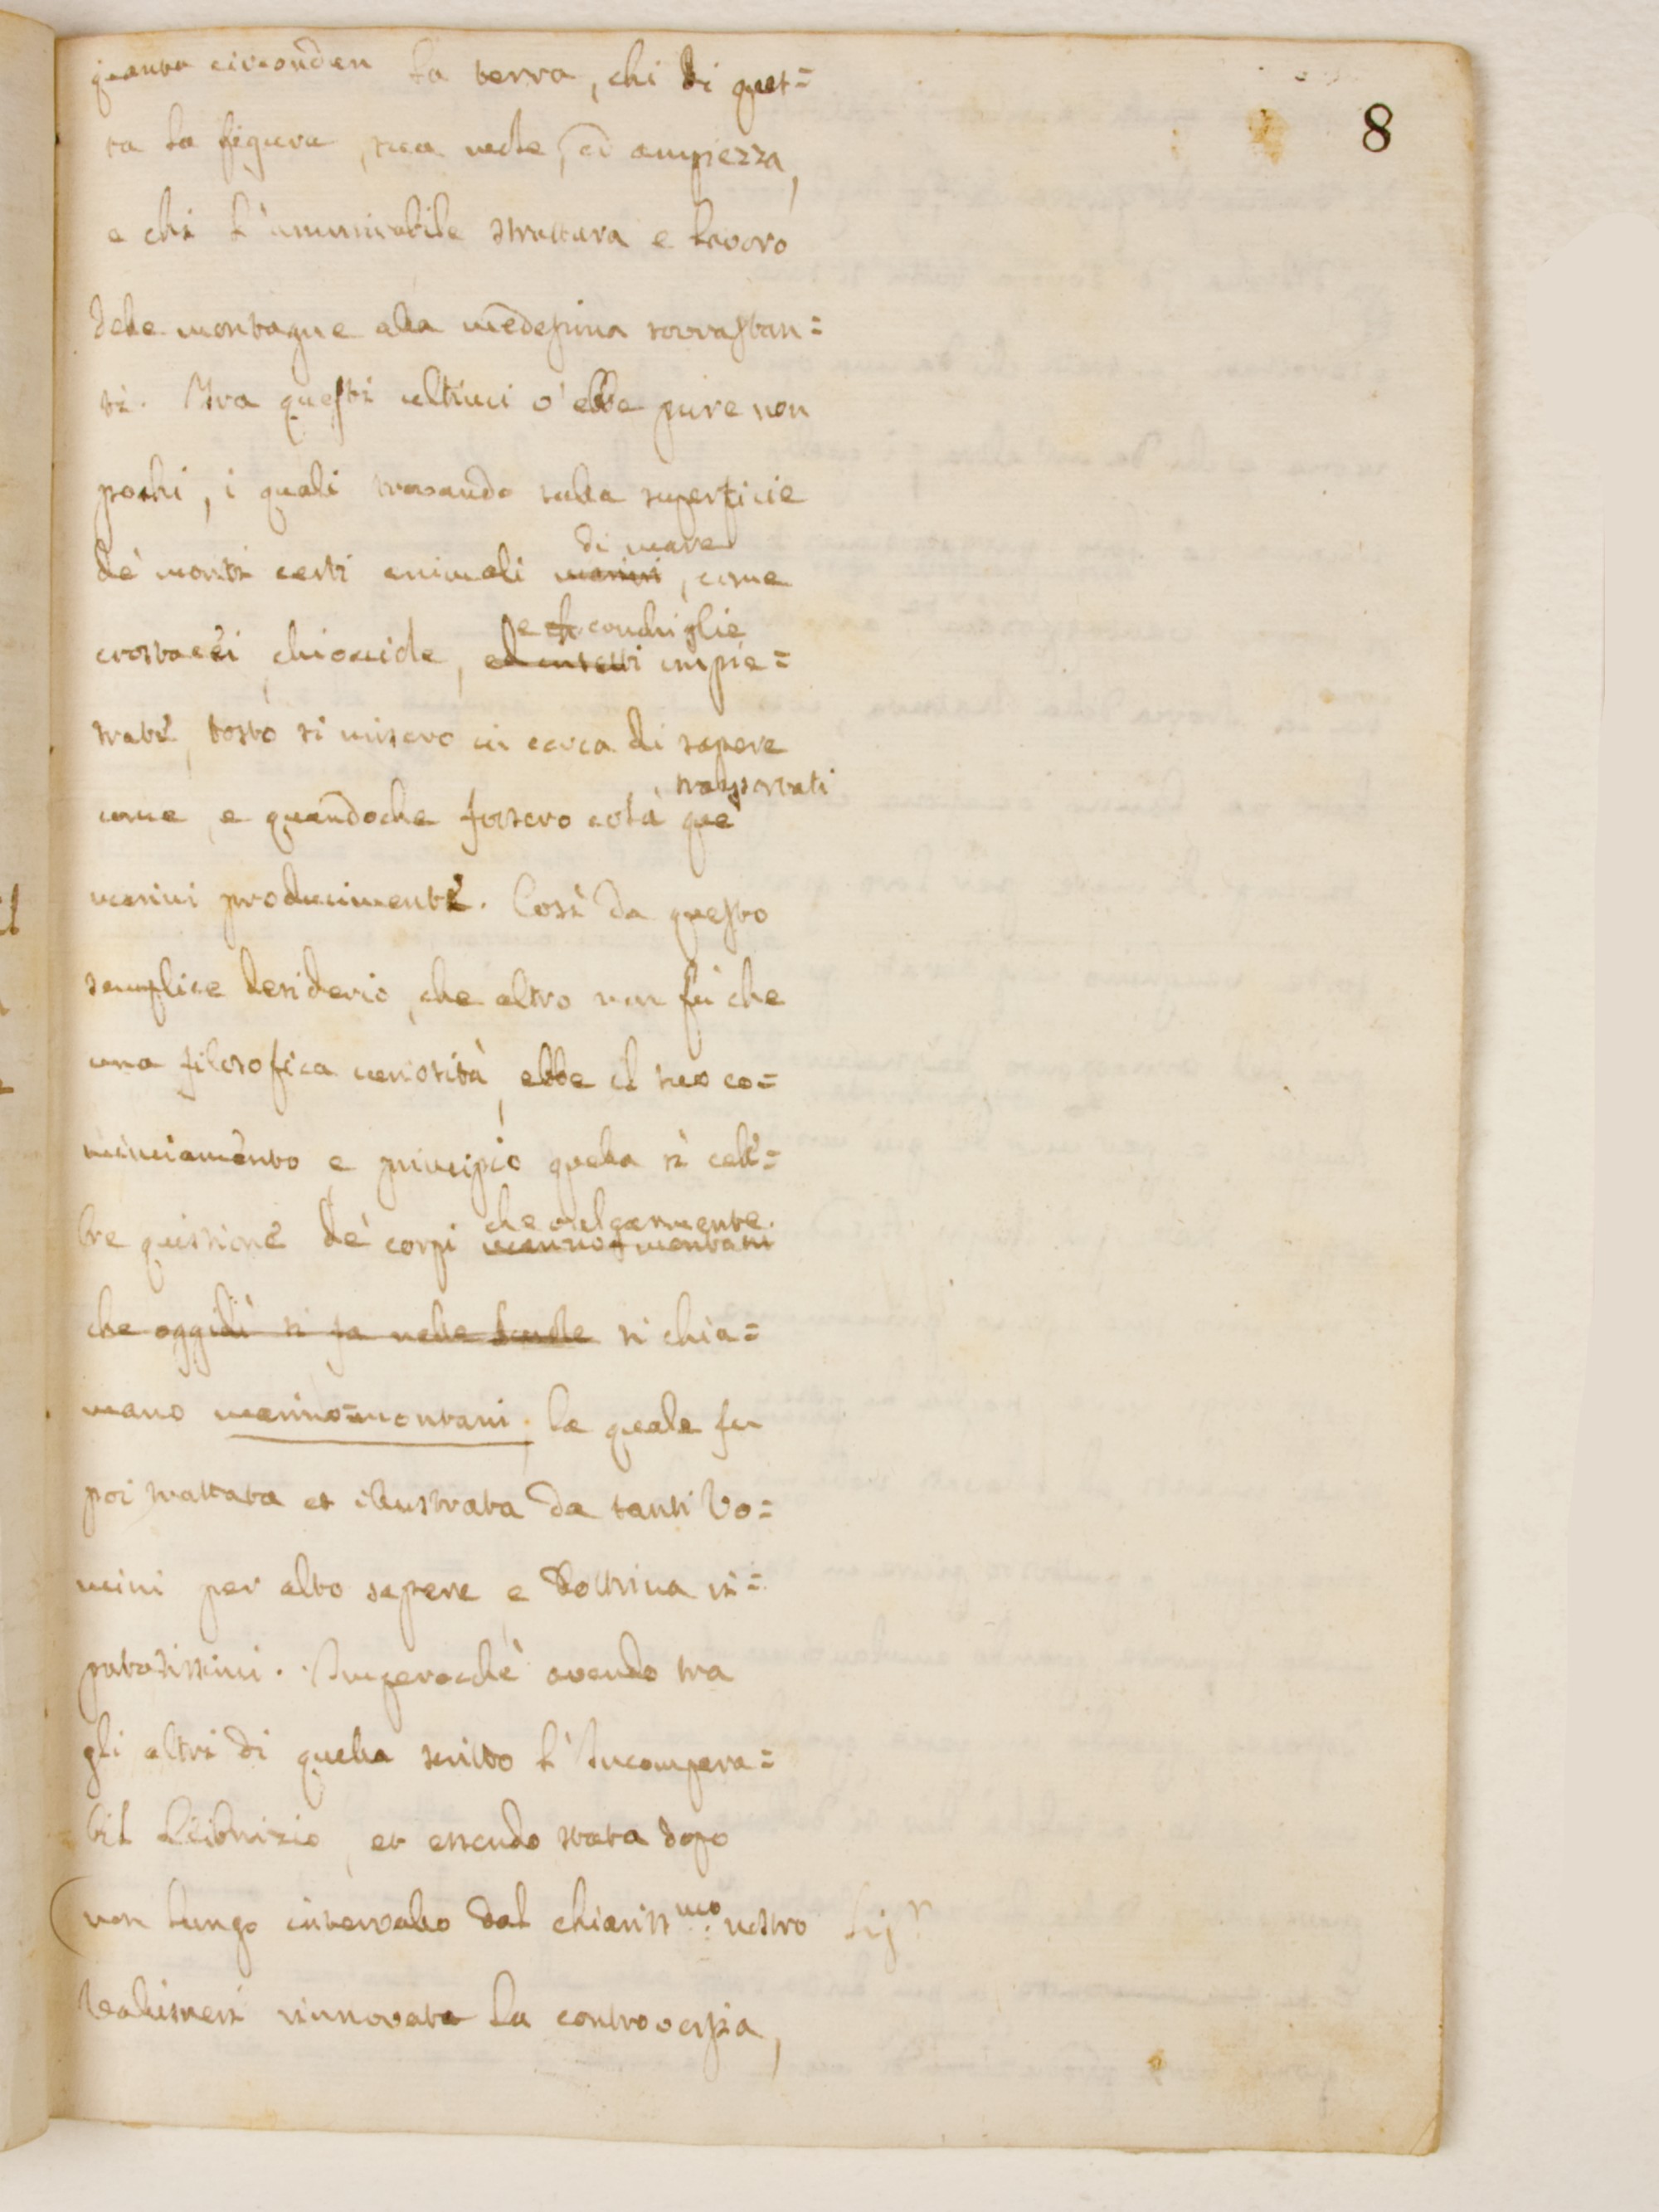 8
circonden la terra, chi di ques=
ta la figura, sua mole, ed ampiezza,
e chi l'ammirabile struttura e lavoro
delle montagne alla medesima sovrastan=
ti. Tra questi ultimi v'ebbe pure non
pochi, i quali trovando sulla superficie
de' monti certi animali marini di mare, come
crostacei, chiocciole, ed insetti e conchiglie impie=
trate, tosto si misero in cerca di sapere
come, e quandoche fossero colà trasportati que'
marini producimenti. Così da questo
semplice desiderio, che altro non fù che
una filosofica curiosità, ebbe il suo co=
minciamento e principio quella sì cele=
bre quistione de' corpi marino=montani che volgarmente
che oggidì si fa nelle scuole si chia=
mano marino=montani, la quale fu
poi trattata et illustrata da tanti Uo=
mini per alto sapere e dottrina ri=
putatissimi. Imperocchè avendo tra
gli altri di quella scritto l'Incompara=
bil Leibnizio, et essendo stata dopo
non lungo intervallo dal chiariss.mo nostro Sig.r
Vallisneri rinnovata la controversia,